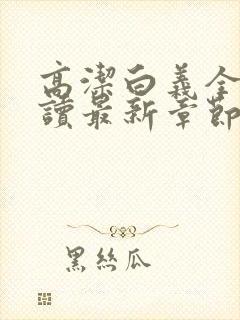 高潔白義全
讀最新章節
黑絲瓜